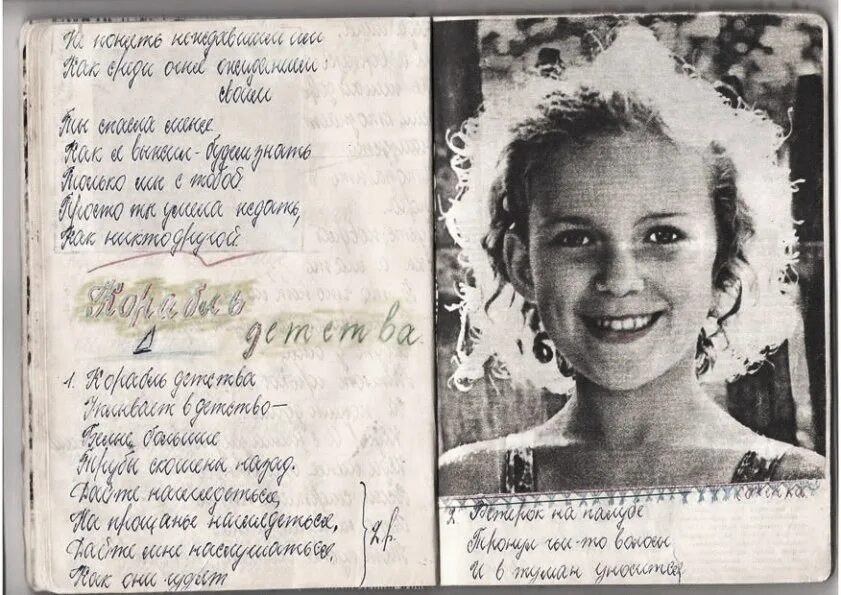 Не понять не ждавшим им
Как среди огня ожиданием
своим
Ты спасла меня
Как я выжил - будем знать
Только мы с тобой.
Просто ты умела ждать,
Как никто другой.
Корабль
детства.
1. Корабль детства
Уплывает в детство –
Белые большие
Трубы скошены назад.
Дайте наглядеться,
На прощанье наглядеться,
Дайте мне наслушаться,
Как они гудят
2 р.
2. Ветерок на палубе
Тронул чьи-то волосы
И в туман уносится